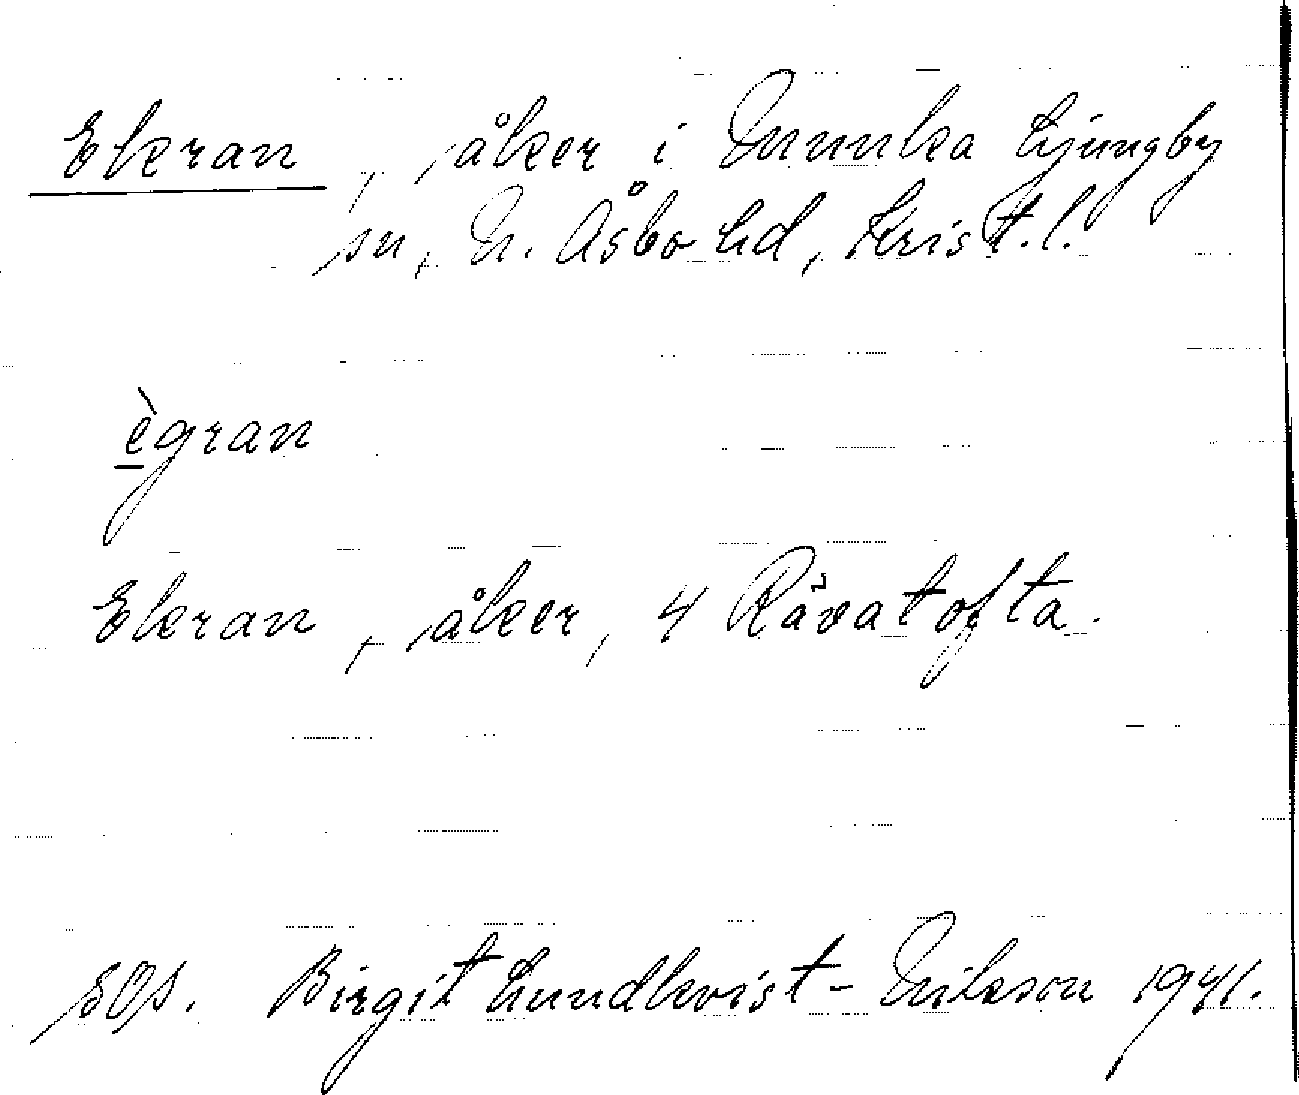 Ekran, åker i Munka Ljungby
sn, N. Åsbo hd, Krist.l.
ègran
Ekran, åker, 4 Rävatofta.
Birgit Lundkvist-Nilsson 1941.